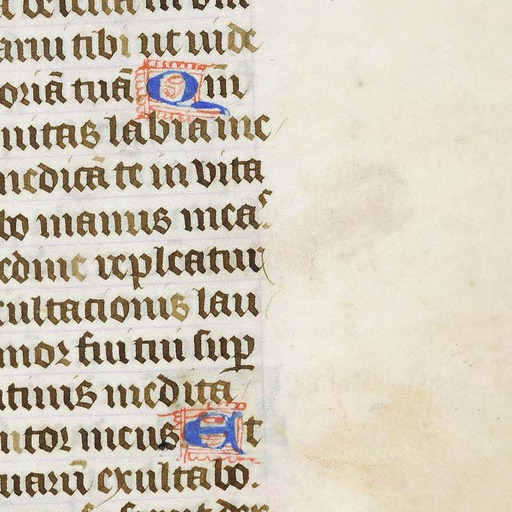 arui tibi ut uide
oriã tuã Qm̃
uitas labia me
nedicã te in vita
bo manus meaˢ
edine repleatur
cultacionis lau
mor fui tui sup̱
utinis medita
utor meus Et
uarũ exultabo.